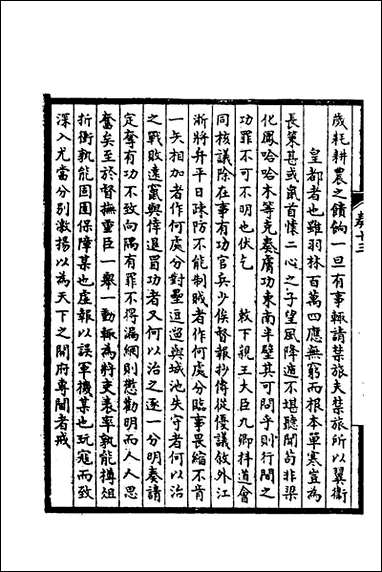 歲耗耕農之餽餉一旦有事輒請禁旅夫禁旅所以翼衛
皇都者也雖羽林百萬四應無窮而根本單寒豈為
長策甚或鼠首懷二心之子望風降遁不堪聽聞苟非梁
化鳳哈哈木等克奏膚功東南半壁其可問乎則行間之
功罪不可不明也伏乞　敕下親王大臣九卿科道會
同核議除在事有功官兵少俟督報抄俘從優議敘外江
浙將弁平日疎防不能制賊者作何處分臨事畏縮不肯
一矢相加者作何處分對壘逗遛與城池失守者何以治
之戰敗遠竄與偉退冒功者又何以治之逐一分明奏請
定奪有功不致向隅有罪不得漏網則懲勸明而人人思
奮矣至於督撫重臣一舉一動輒為將吏表率孰能樽俎
折衝孰能固圉保障某也虛報以誤軍機某也玩寇而致
深入尤當分別激揚以為天下之開府專閫者戒
奏十三